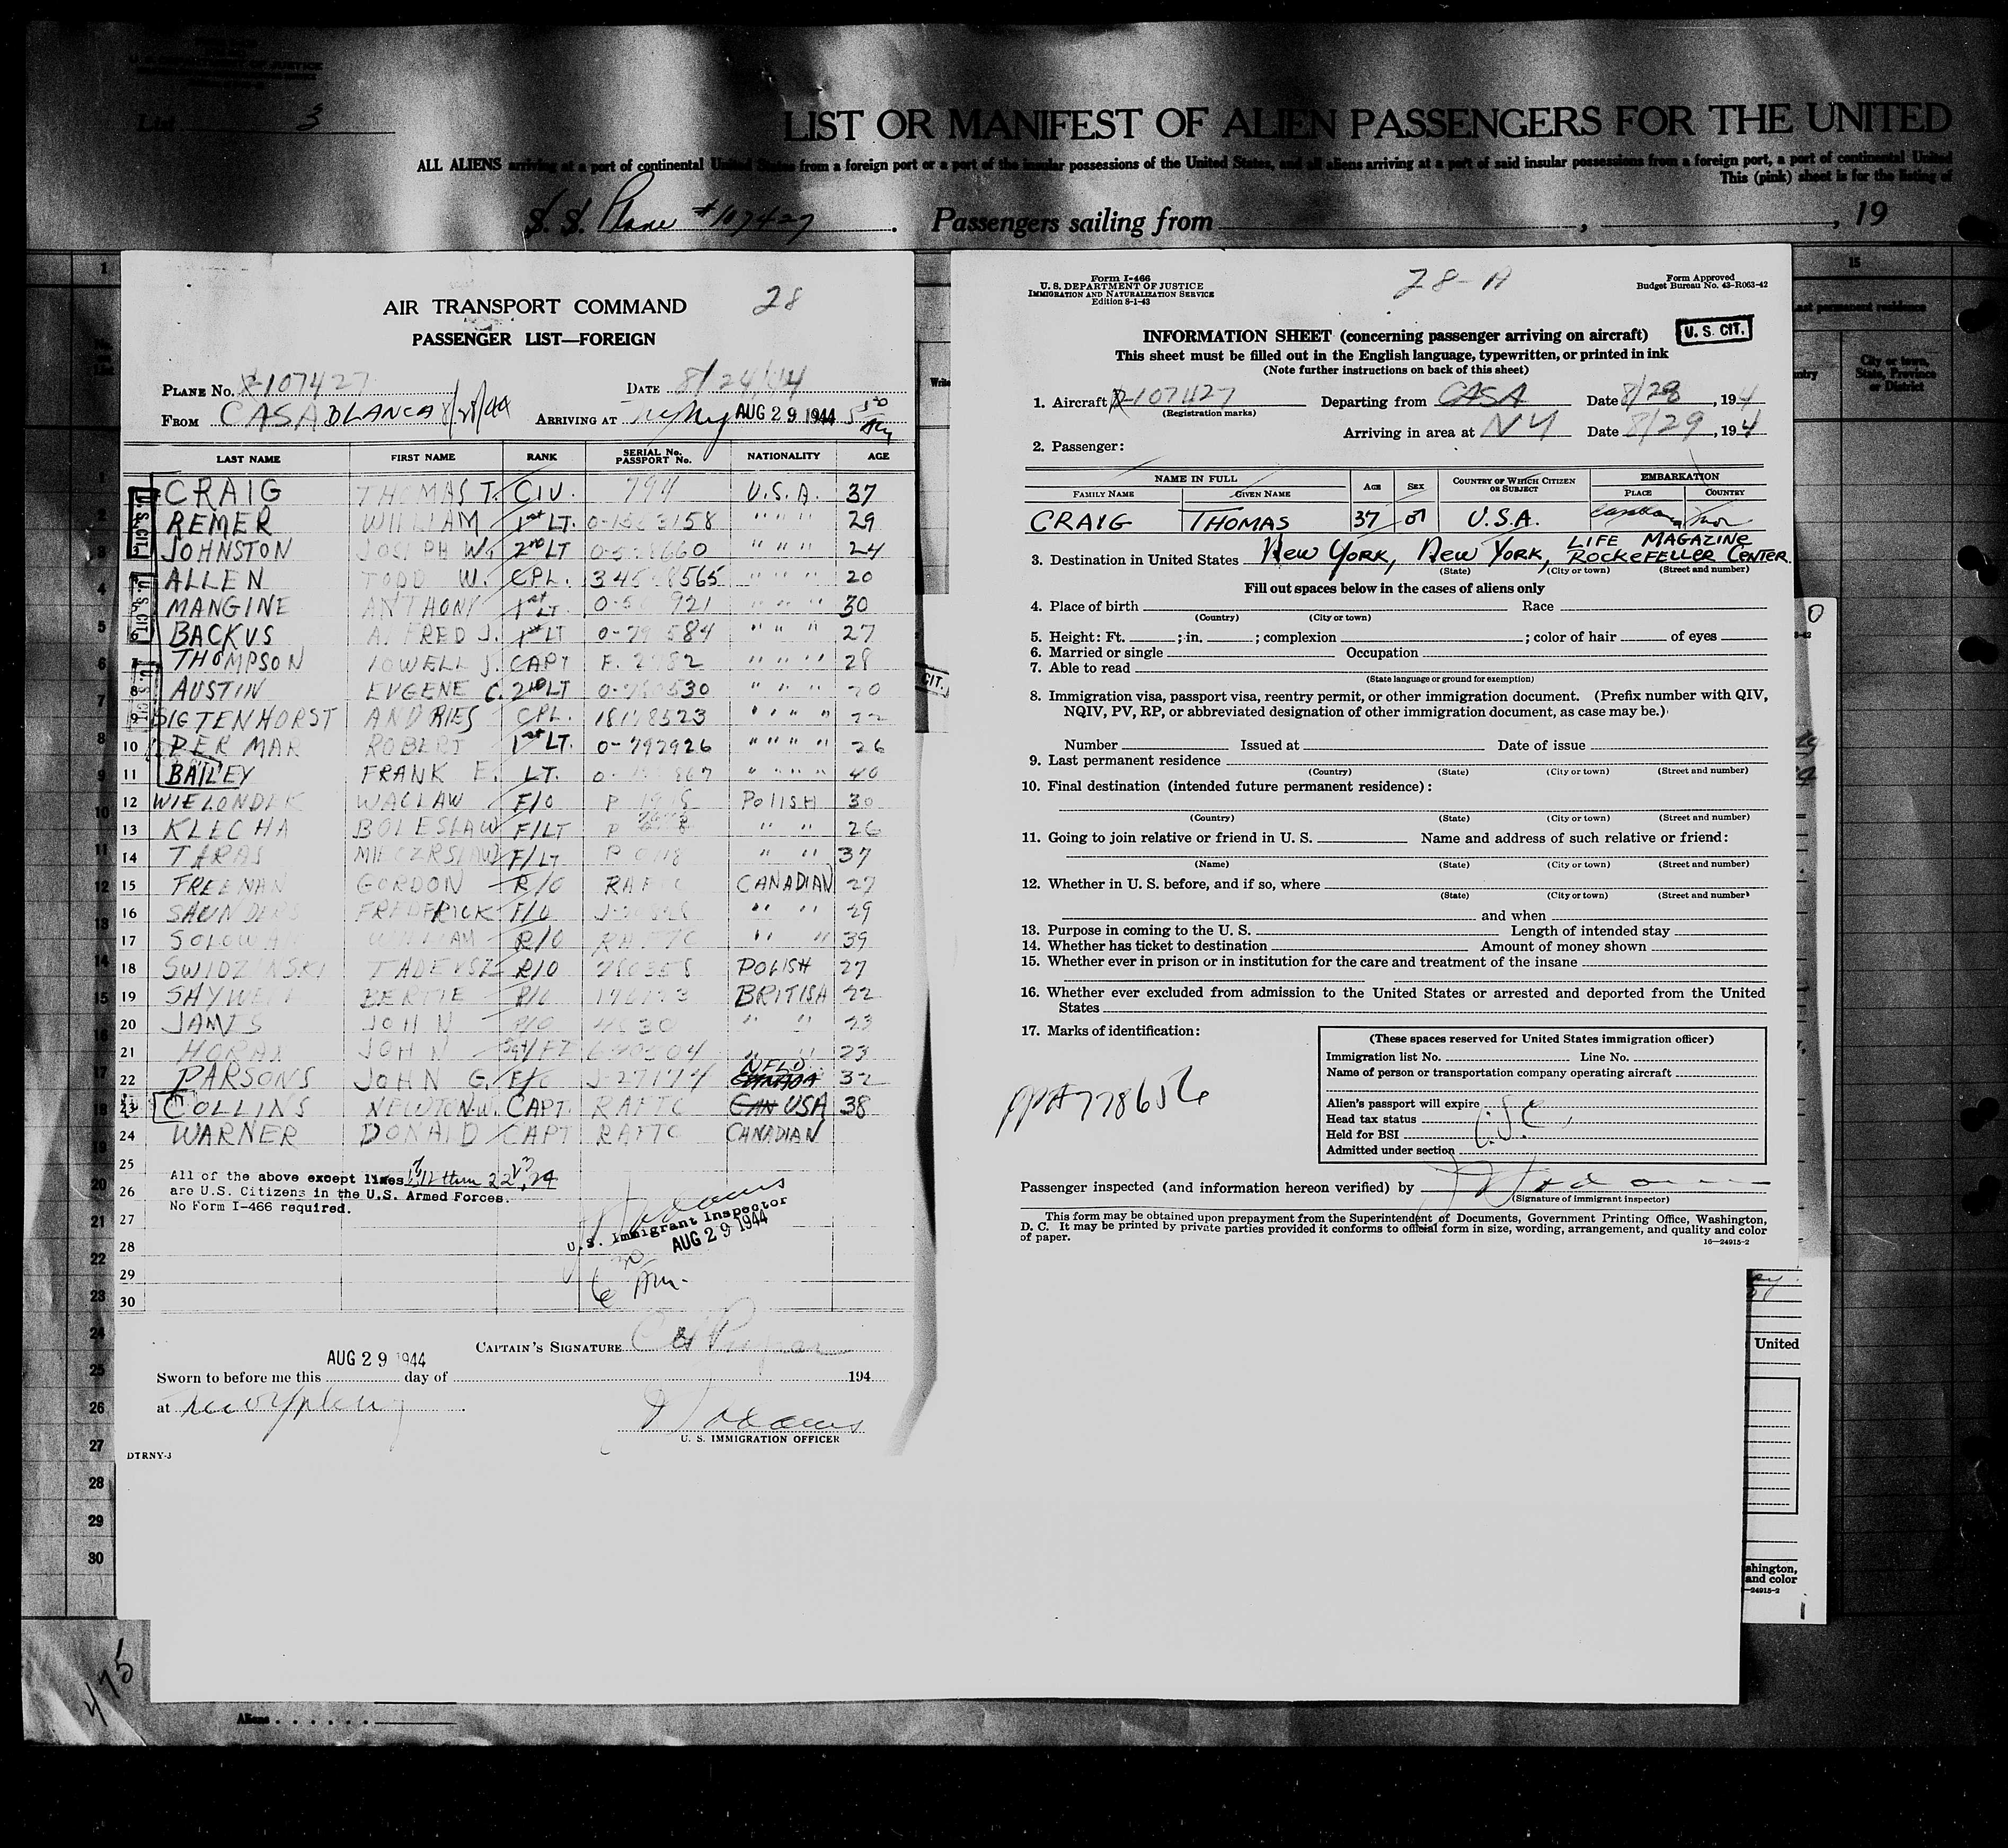 U. S. DEPARTMENT OF JUSTICE
List 3
LIST OR MANIFEST OF ALIEN PASSENGERS FOR THE UNITED
ALL ALIENS arriving at a port of continental United States from a foreign port or a port of the insular possessions of the United States, and all aliens arriving at a port of said insular possessions from a foreign port, a port of continental United
This (pink) sheet is for the listing of
S. S. Plane #107427 . Passengers sailing from , , 19
AIR TRANSPORT COMMAND 28
PASSENGER LIST—FOREIGN
PLANE No. 107427 DATE 8/24/44
FROM CASABLANCA 8/28/44 ARRIVING AT AUG 29 1944
LAST NAME FIRST NAME RANK SERIAL No. PASSPORT No. NATIONALITY AGE
CRAIG THOMAS T. CIV. 794 U.S.A. 37
REMER WILLIAM 1st LT. 29
JOHNSTON JOSEPH W. 2nd LT 24
ALLEN TODD W. CPL. 20
MANGINE ANTHONY 1st LT. 30
BACKUS ALFRED J. 1st LT 27
THOMPSON LOWELL J. CAPT 28
AUSTIN EUGENE C. 2nd LT
DIGTENHORST ANDRIES CPL. 22
10 DER MAR ROBERT 1st LT. 0-792926 26
11 BAILEY FRANK E. LT. 40
12 WIELONDEK WACLAW F/O POLISH 30
13 KLECHA BOLESLAW F/LT " " 26
14 TARAS F/LT " " 37
15 FREEMAN GORDON R/O RAFTC CANADIAN 27
16 SAUNDERS FREDERICK F/O " " 29
17 WILLIAM R/O RAFTC " " 39
18 SWIDZINSKI TADEUSZ R/O POLISH 27
19 BERTIE R/O BRITISH 22
20 JOHN R/O " " 23
21 JOHN " " 23
22 PARSONS JOHN G. F/O J-27174 NFLD. 32
23 COLLINS NEWTON W. CAPT. RAFTC USA 38
24 WARNER DONALD CAPT RAFTC CANADIAN
25
26
27
28
29
30
All of the above except lines 1, 11 thru 22, 24
are U.S. Citizens in the U.S. Armed Forces.
No Form I-466 required.
U.S. Immigrant Inspector
AUG 29 1944
6 AM.
CAPTAIN'S SIGNATURE
AUG 29 1944
Sworn to before me this day of 194
at
U. S. IMMIGRATION OFFICER
DTRNY-3
Form I-466
U. S. DEPARTMENT OF JUSTICE
IMMIGRATION AND NATURALIZATION SERVICE
Edition 8-1-43
28-A
Form Approved
Budget Bureau No. 43-R063-42
INFORMATION SHEET (concerning passenger arriving on aircraft) U. S. CIT.
This sheet must be filled out in the English language, typewritten, or printed in ink
(Note further instructions on back of this sheet)
1. Aircraft 107427 Departing from CASA Date 8/28, 194
(Registration marks)
Arriving in area at NY Date 8/29, 194
2. Passenger:
NAME IN FULL AGE SEX COUNTRY OF WHICH CITIZEN OR SUBJECT EMBARKATION
FAMILY NAME GIVEN NAME PLACE COUNTRY
CRAIG THOMAS 37 M U.S.A.
3. Destination in United States NEW YORK, NEW YORK, LIFE MAGAZINE ROCKEFELLER CENTER.
(State) (City or town) (Street and number)
Fill out spaces below in the cases of aliens only
4. Place of birth Race
(Country) (City or town)
5. Height: Ft. ; in. ; complexion ; color of hair of eyes
6. Married or single Occupation
7. Able to read
(State language or ground for exemption)
8. Immigration visa, passport visa, reentry permit, or other immigration document. (Prefix number with QIV,
NQIV, PV, RP, or abbreviated designation of other immigration document, as case may be.)
Number Issued at Date of issue
9. Last permanent residence
(Country) (State) (City or town) (Street and number)
10. Final destination (intended future permanent residence):
(Country) (State) (City or town) (Street and number)
11. Going to join relative or friend in U. S. Name and address of such relative or friend:
(Name) (State) (City or town) (Street and number)
12. Whether in U. S. before, and if so, where
(State) (City or town) (Street and number)
and when
13. Purpose in coming to the U. S. Length of intended stay
14. Whether has ticket to destination Amount of money shown
15. Whether ever in prison or in institution for the care and treatment of the insane
16. Whether ever excluded from admission to the United States or arrested and deported from the United
States
17. Marks of identification:
(These spaces reserved for United States immigration officer)
Immigration list No. Line No.
Name of person or transportation company operating aircraft
Alien's passport will expire
Head tax status
Held for BSI
Admitted under section
Passenger inspected (and information hereon verified) by
(Signature of immigrant inspector)
This form may be obtained upon prepayment from the Superintendent of Documents, Government Printing Office, Washington,
D. C. It may be printed by private parties provided it conforms to official form in size, wording, arrangement, and quality and color
of paper.
16—24915-2
15
City or town, State, Province or District
United
shington,
and color
—24915-2
475
Aliens